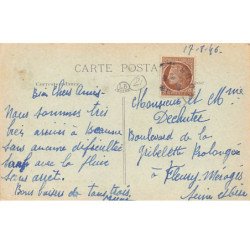 17-8-46.
CARTE POSTA
Correspon
Bien Chers Amis
Nous sommes très
bien arrivés à Beaune
sans aucune difficultés
sauf avec la pluie
sans arrêt.
Bons baisers de tous trois
Monsieur et Mme
Boulevard de la
Gribelette Prolongée
à Fleury-Mérogis
Seine et Oise